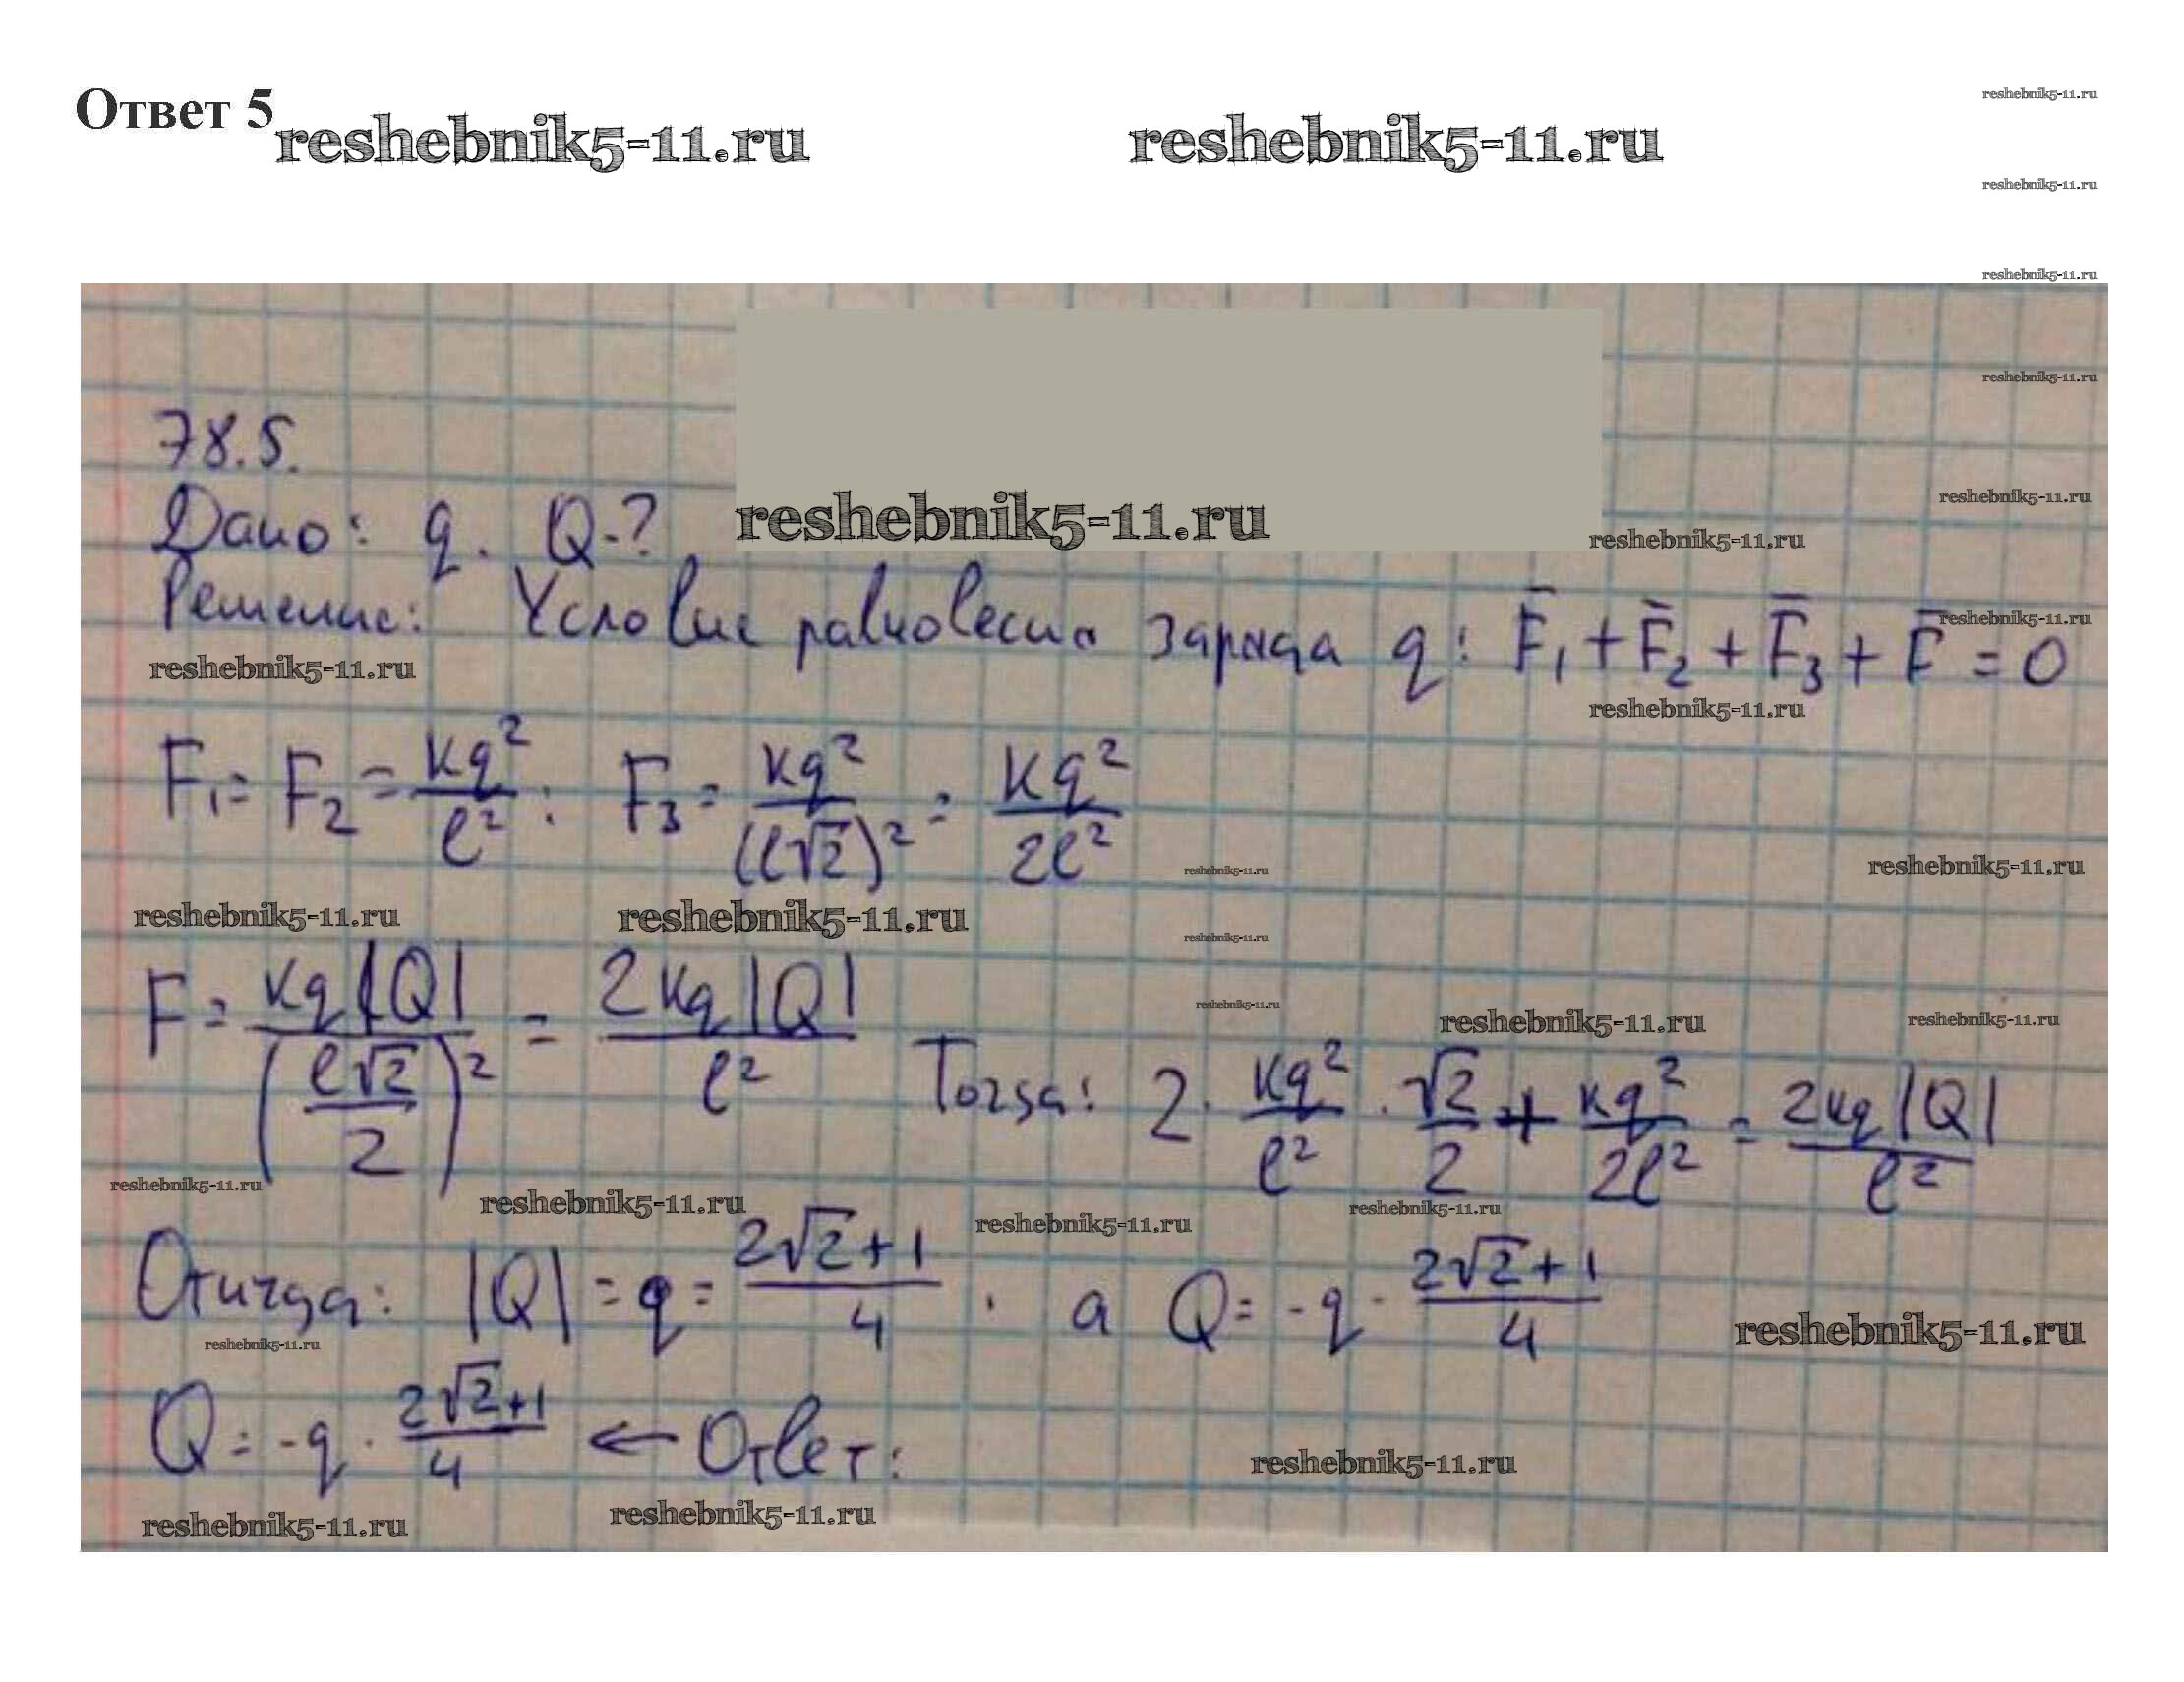 Ответ 5
reshebnik5-11.ru reshebnik5-11.ru reshebnik5-11.ru
reshebnik5-11.ru
reshebnik5-11.ru
reshebnik5-11.ru
78.5.
reshebnik5-11.ru
Дано: q. Q-? reshebnik5-11.ru reshebnik5-11.ru
Решение: Условие равновесия заряда q: F̄₁ + F̄₂ + F̄₃ + F̄ = 0
reshebnik5-11.ru
reshebnik5-11.ru reshebnik5-11.ru
F₁ = F₂ = kq²/l² ; F₃ = kq²/(l√2)² = kq²/2l²
reshebnik5-11.ru reshebnik5-11.ru
reshebnik5-11.ru reshebnik5-11.ru reshebnik5-11.ru
F = kq|Q|/(l√2/2)² = 2kq|Q|/l² Тогда: 2 · kq²/l² · √2/2 + kq²/2l² = 2kq|Q|/l²
reshebnik5-11.ru reshebnik5-11.ru reshebnik5-11.ru
reshebnik5-11.ru reshebnik5-11.ru reshebnik5-11.ru reshebnik5-11.ru
Откуда: |Q| = q = 2√2+1/4 , а Q = -q · 2√2+1/4
reshebnik5-11.ru reshebnik5-11.ru
Q = -q · 2√2+1/4 ← Ответ:
reshebnik5-11.ru
reshebnik5-11.ru reshebnik5-11.ru